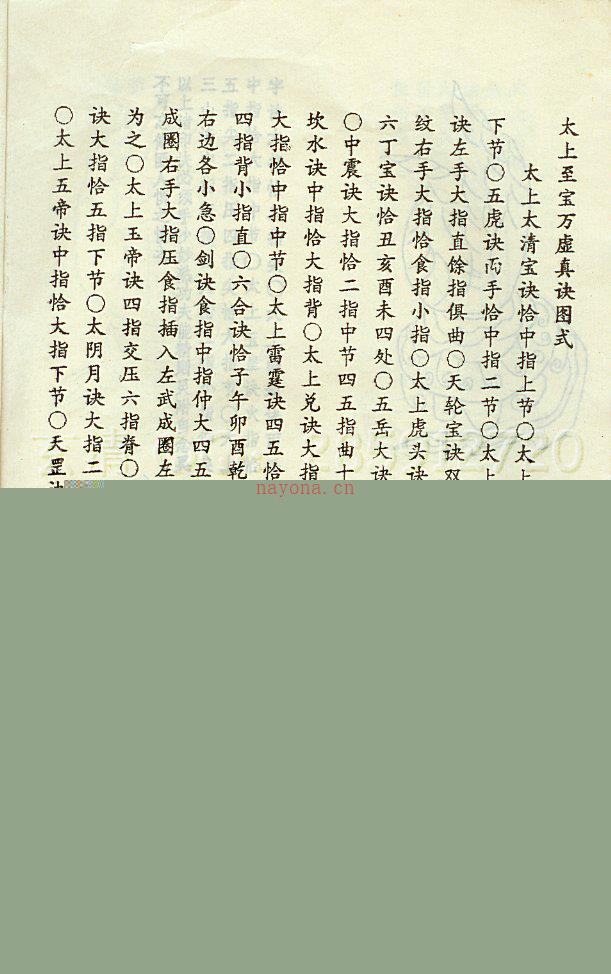 太上至宝万虚真诀图式
太上太清宝诀恰中指上节○太上
下节○五虎诀两手恰中指二节○太上
诀左手大指直馀指俱曲○天轮宝诀双
纹右手大指恰食指小指○太上虎头诀
六丁宝诀恰丑亥酉未四处○五岳大诀
○中震诀大指恰二指中节四五指曲十
坎水诀中指恰大指背○太上兑诀大指
大指恰中指中节○太上雷霆诀四五恰
四指背小指直○六合诀恰子午卯酉乾
右边各小急○剑诀食指中指仲大四五
成圈右手大指压食指插入左武成圈左
为之○太上玉帝诀四指交压六指脊○
诀大指恰五指下节○太阴月诀大指二
○太上五帝诀中指恰大指下节○天罡
nayona.cn